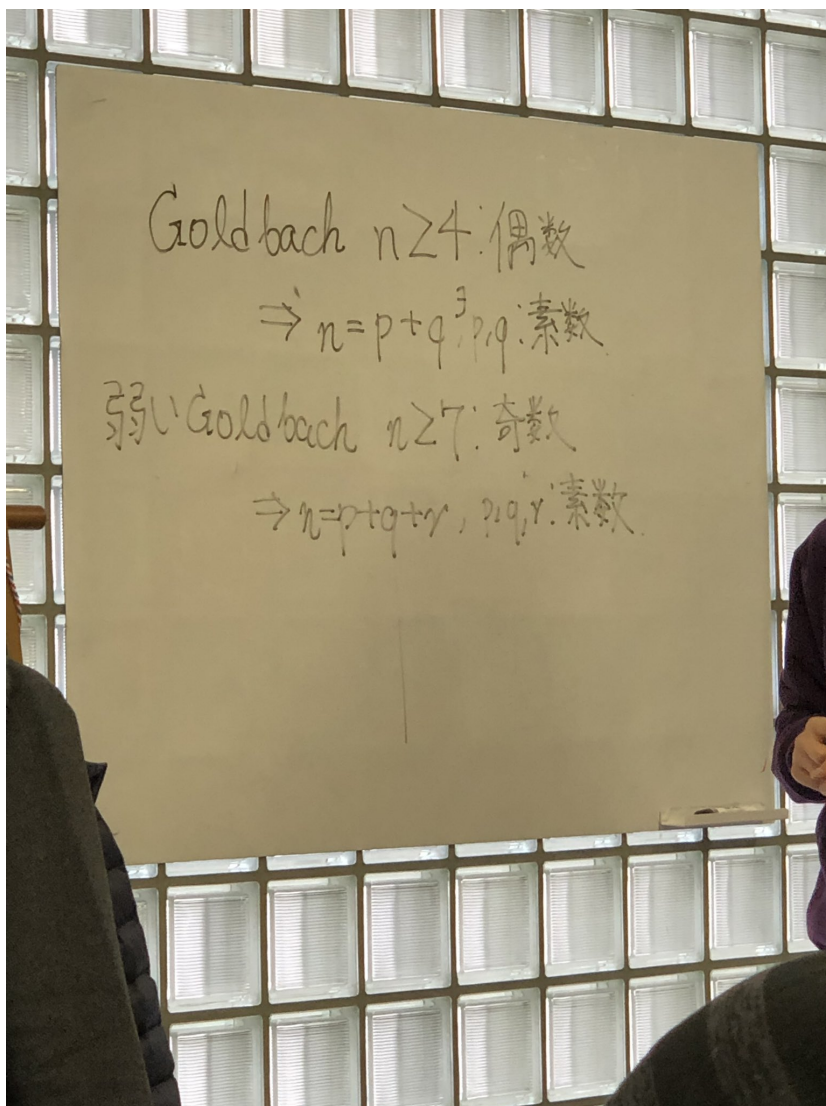 Goldbach n≥4:偶数
⇒ n=p+q³, p,q:素数
弱いGoldbach n≥7:奇数
⇒n=p+q+r, p,q,r:素数.